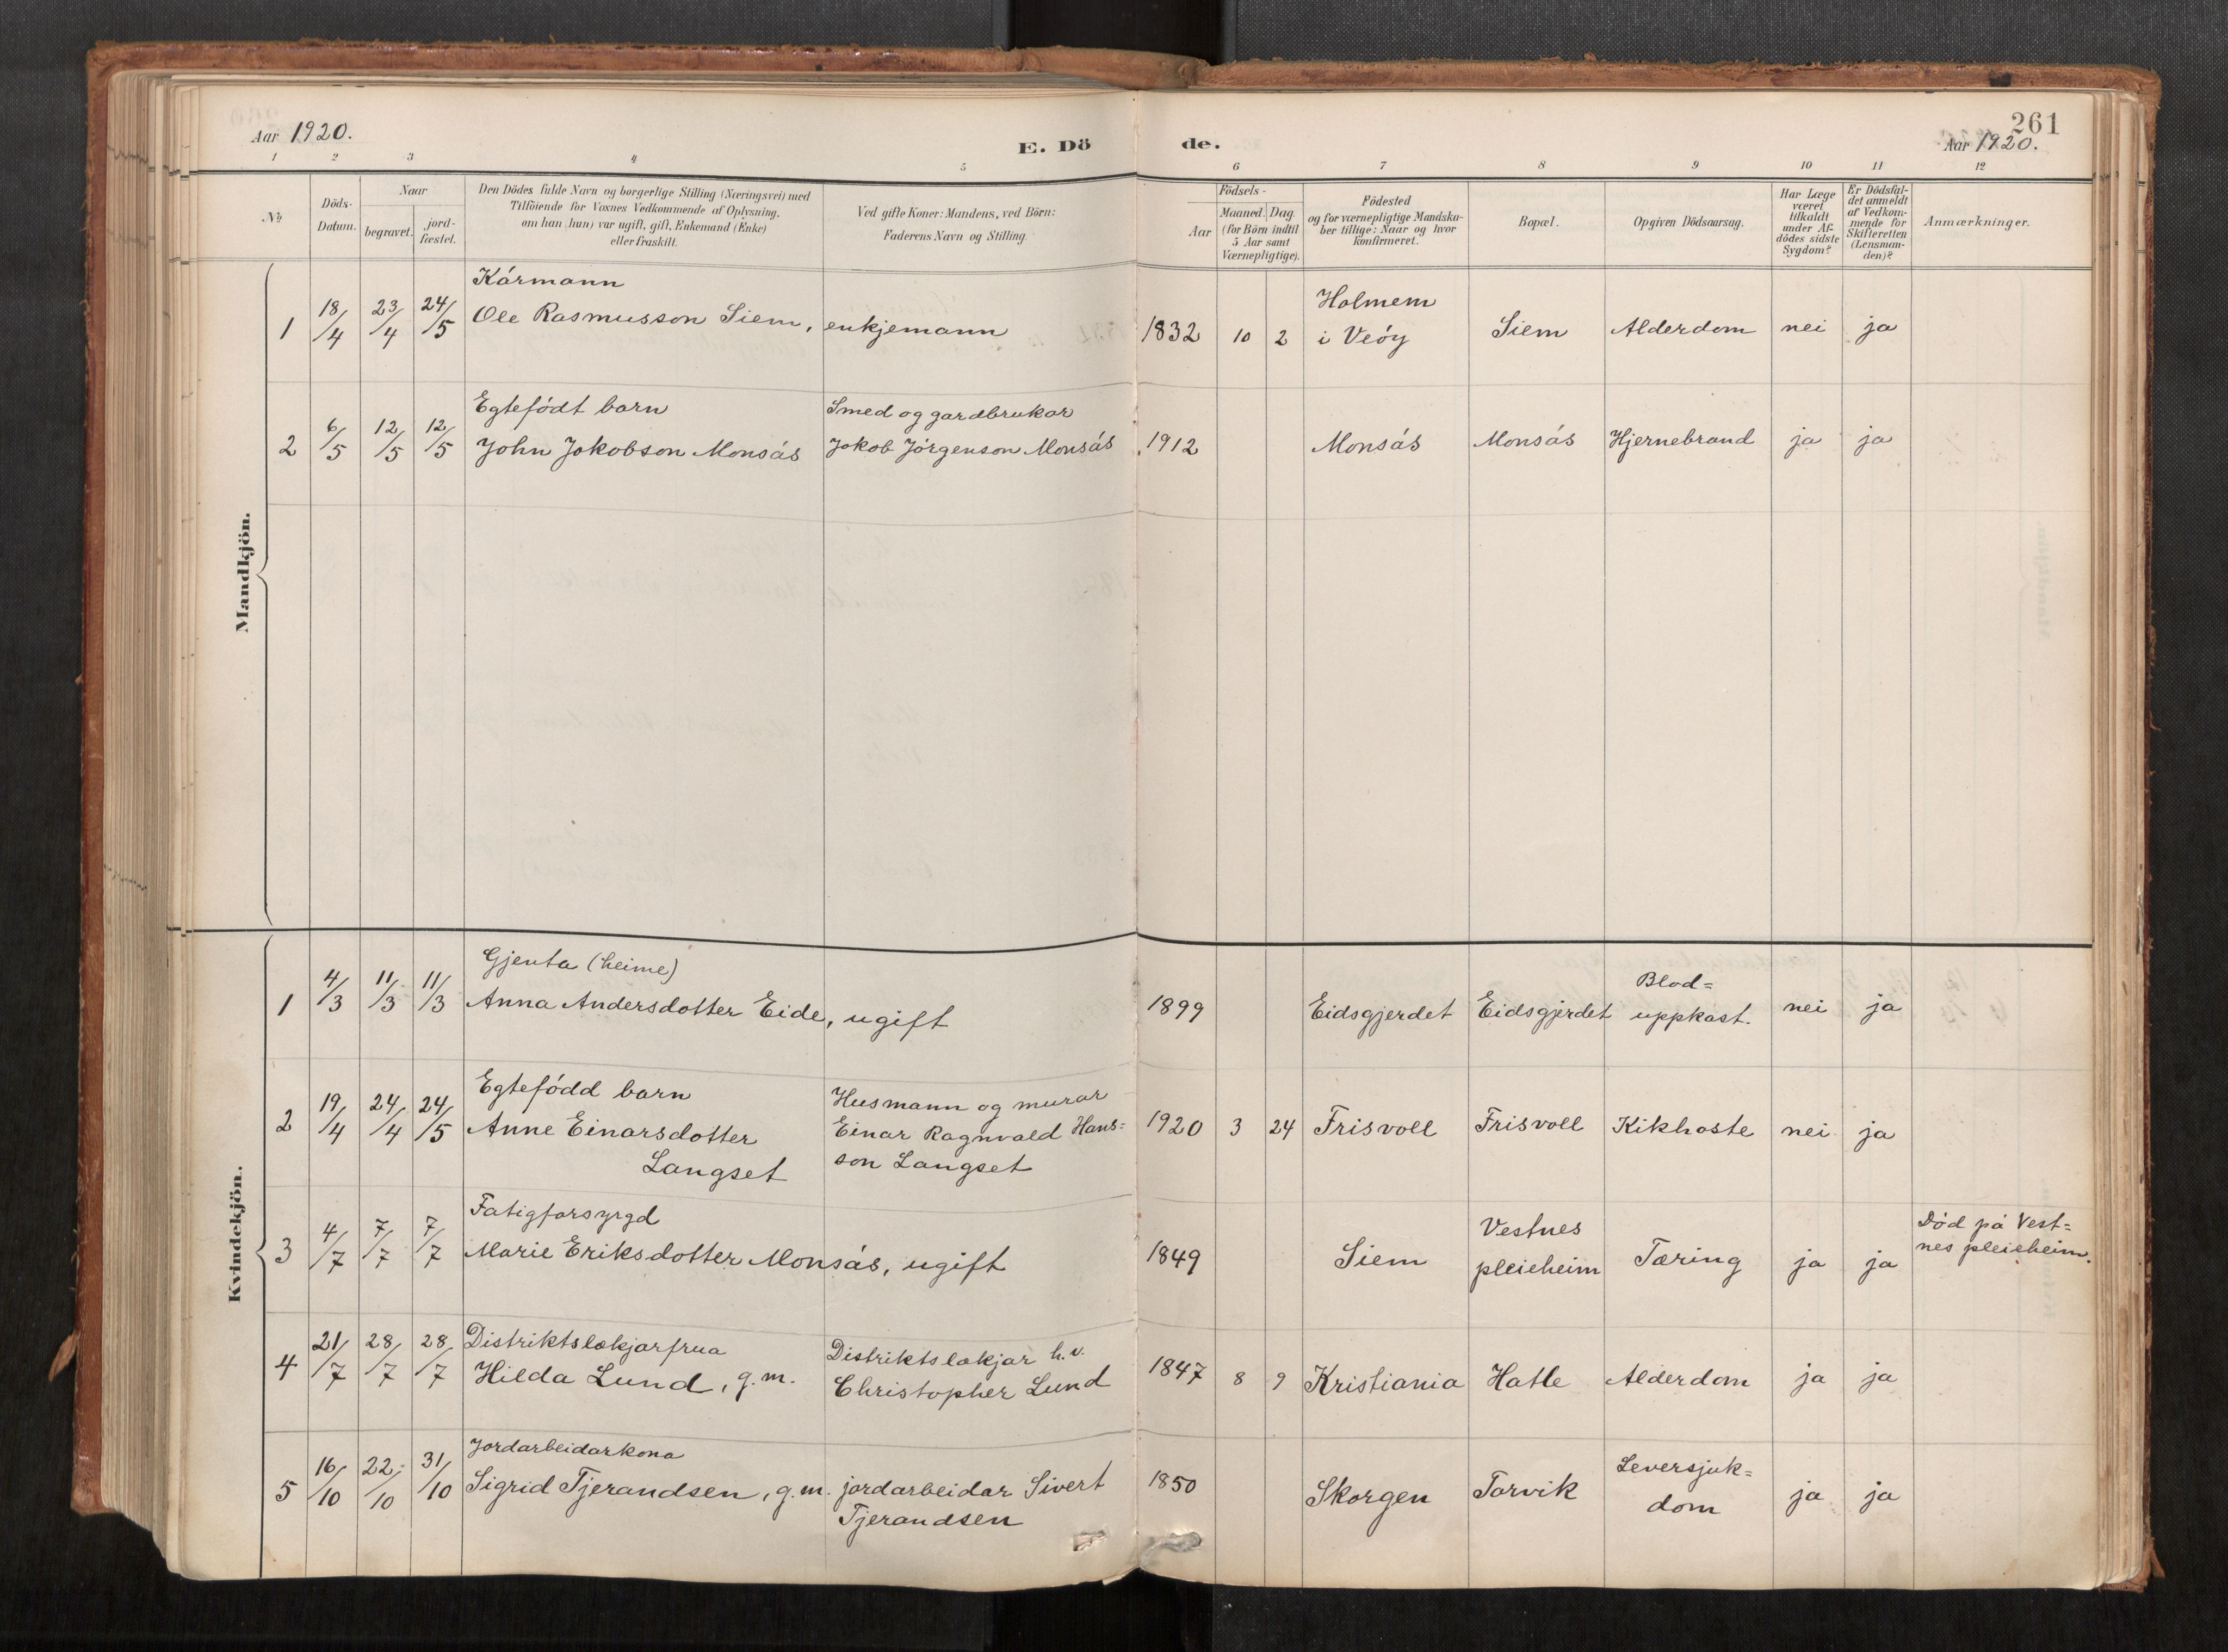 Aar 1920.
E. Dö
de.
261
Aar 1920.
1 2 3 4 5 6 7 8 9 10 11 12
№
Döds-
Datum.
Naar
begravet.
jord-
fæstet.
Den Dödes fulde Navn og borgerlige Stilling (Næringsvei) med
Tilföiende for Voxnes Vedkommende af Oplysning,
om han (hun) var ugift, gift, Enkemand (Enke)
eller fraskilt.
Ved gifte Koner: Mandens, ved Börn:
Faderens Navn og Stilling.
Födsels-
Aar
Maaned. Dag.
(for Börn indtil
5 Aar samt
Værnepligtige).
Födested
og for værnepligtige Mandska-
ber tillige: Naar og hvor
konfirmeret.
Bopæl.
Opgiven Dödsaarsag.
Har Læge
været
tilkaldt
under Af-
dödes sidste
Sygdom?
Er Dödsfal-
det anmeldt
af Vedkom-
mende for
Skifteretten
(Lensman-
den)?
Anmærkninger.
Mandkjön.
Kårmann
1 18/4 23/4 24/5 Ole Rasmusson Siem, enkjemann 1832 10 2 Holmem
i Veöy Siem Alderdom nei ja
Egtefödt barn Smed og gardbrukar
2 6/5 12/5 12/5 John Jakobson Monsås Jakob Jörgenson Monsås 1912 Monsås Monsås Hjernebrand ja ja
Kvindekjön.
Gjenta (heime)
1 4/3 11/3 11/3 Anna Andersdotter Eide, ugift 1899 Eidsgjerdet Eidsgjerdet Blod=
uppkast. nei ja
Egtefödd barn Husmann og murar
2 19/4 24/4 24/5 Anne Einarsdotter Einar Ragnvald Hans= 1920 3 24 Frisvoll Frisvoll Kikhoste nei ja
Langset son Langset
Fatigforsyrgd
3 4/7 7/7 7/7 Marie Eriksdotter Monsås, ugift 1849 Siem Vestnes
pleieheim Tæring ja ja Död på Vest=
nes pleieheim.
Distriktslækjarfrua Distriktslækjar h.v.
4 21/7 28/7 28/7 Hilda Lund, g.m. Christopher Lund 1847 8 9 Kristiania Hatle Alderdom ja ja
Jordarbeidarkona
5 16/10 22/10 31/10 Sigrid Tjerandsen, g.m. jordarbeidar Sivert 1850 Skorgen Torvik Leversjuk=
dom ja ja
Tjerandsen